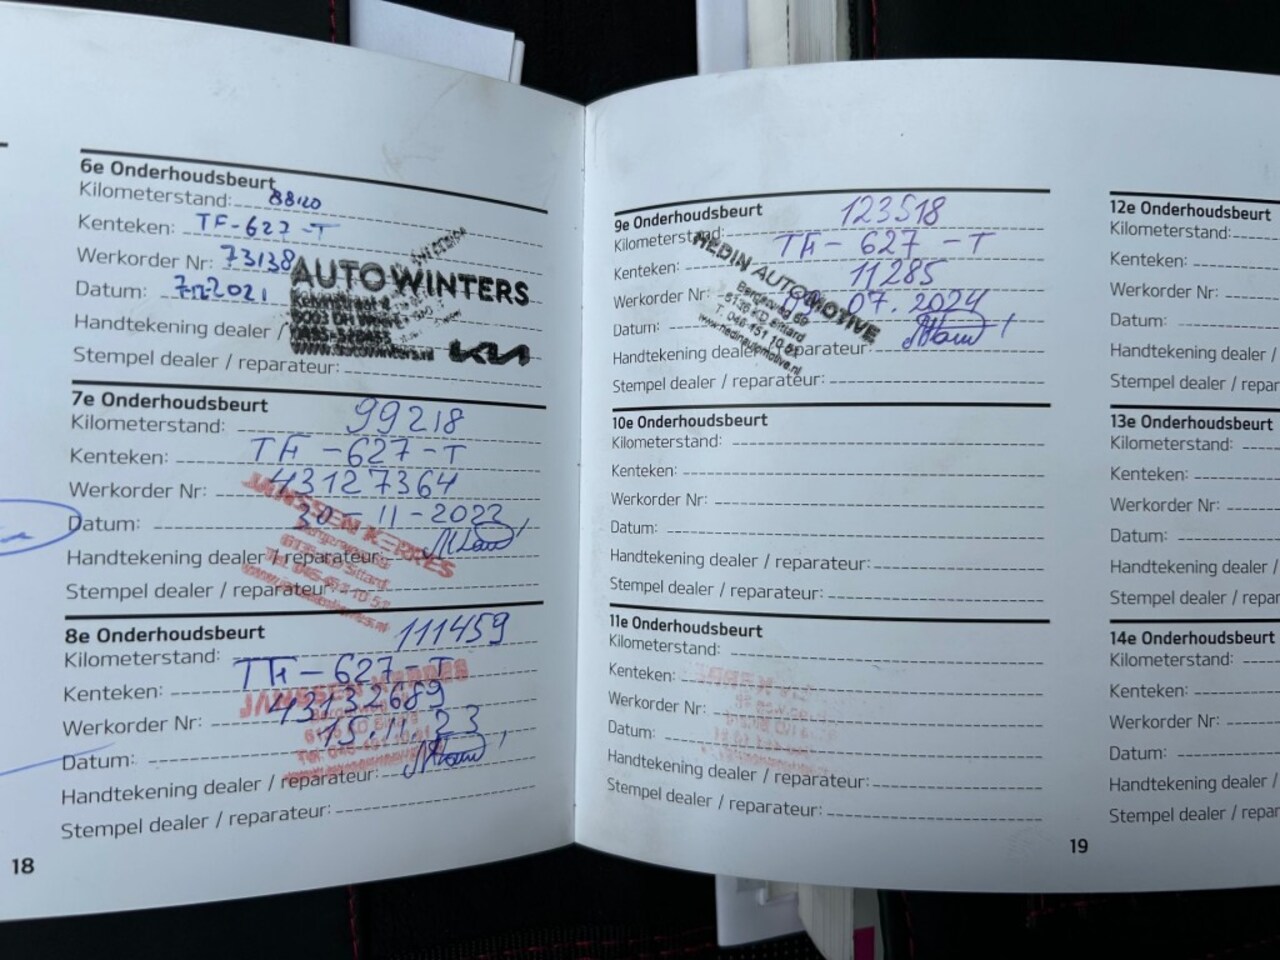 6e Onderhoudsbeurt
Kilometerstand: 88120
Kenteken: TF-627-T
Werkorder Nr: 73138
Datum: 2021
Handtekening dealer /
Stempel dealer / reparateur:
AUTO WINTERS
www.autowinters.nl KIA
7e Onderhoudsbeurt
Kilometerstand: 99218
Kenteken: TF-627-T
Werkorder Nr: 43127364
Datum: 30-11-2022
Handtekening dealer / reparateur:
Stempel dealer / reparateur:
JANSSEN KERRES
Sittard
8e Onderhoudsbeurt
Kilometerstand: 111459
Kenteken: TF-627-T
Werkorder Nr: 43132689
Datum: 15.11.23
Handtekening dealer / reparateur:
Stempel dealer / reparateur:
JANSSEN KERRES
18
9e Onderhoudsbeurt
Kilometerstand: 123518
Kenteken: TF-627-T
Werkorder Nr: 11285
Datum: 07.2024
Handtekening dealer / reparateur:
Stempel dealer / reparateur:
HEDIN AUTOMOTIVE
Bergerweg 69
6135 KD Sittard
T. 046 451 10 51
www.hedinautomotive.nl
10e Onderhoudsbeurt
Kilometerstand:
Kenteken:
Werkorder Nr:
Datum:
Handtekening dealer / reparateur:
Stempel dealer / reparateur:
11e Onderhoudsbeurt
Kilometerstand:
Kenteken:
Werkorder Nr:
Datum:
Handtekening dealer / reparateur:
Stempel dealer / reparateur:
19
12e Onderhoudsbeurt
Kilometerstand:
Kenteken:
Werkorder Nr:
Datum:
Handtekening dealer /
Stempel dealer / repar
13e Onderhoudsbeurt
Kilometerstand:
Kenteken:
Werkorder Nr:
Datum:
Handtekening dealer /
Stempel dealer / repar
14e Onderhoudsbeurt
Kilometerstand:
Kenteken:
Werkorder Nr:
Datum:
Handtekening dealer /
Stempel dealer / repar